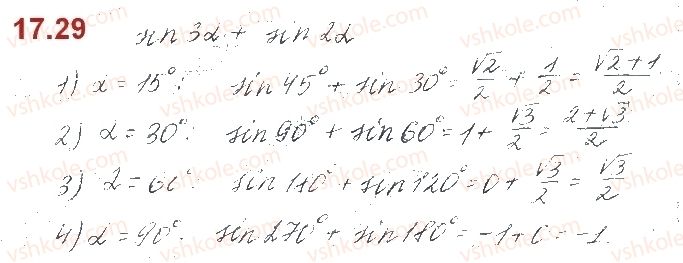 17.29 sin 3α + sin 2α
1) α = 15°: sin 45° + sin 30° = √2/2 + 1/2 = (√2 + 1)/2
2) α = 30°: sin 90° + sin 60° = 1 + √3/2 = (2 + √3)/2
3) α = 60° sin 180° + sin 120° = 0 + √3/2 = √3/2
4) α = 90°: sin 270° + sin 180° = -1 + 0 = -1.